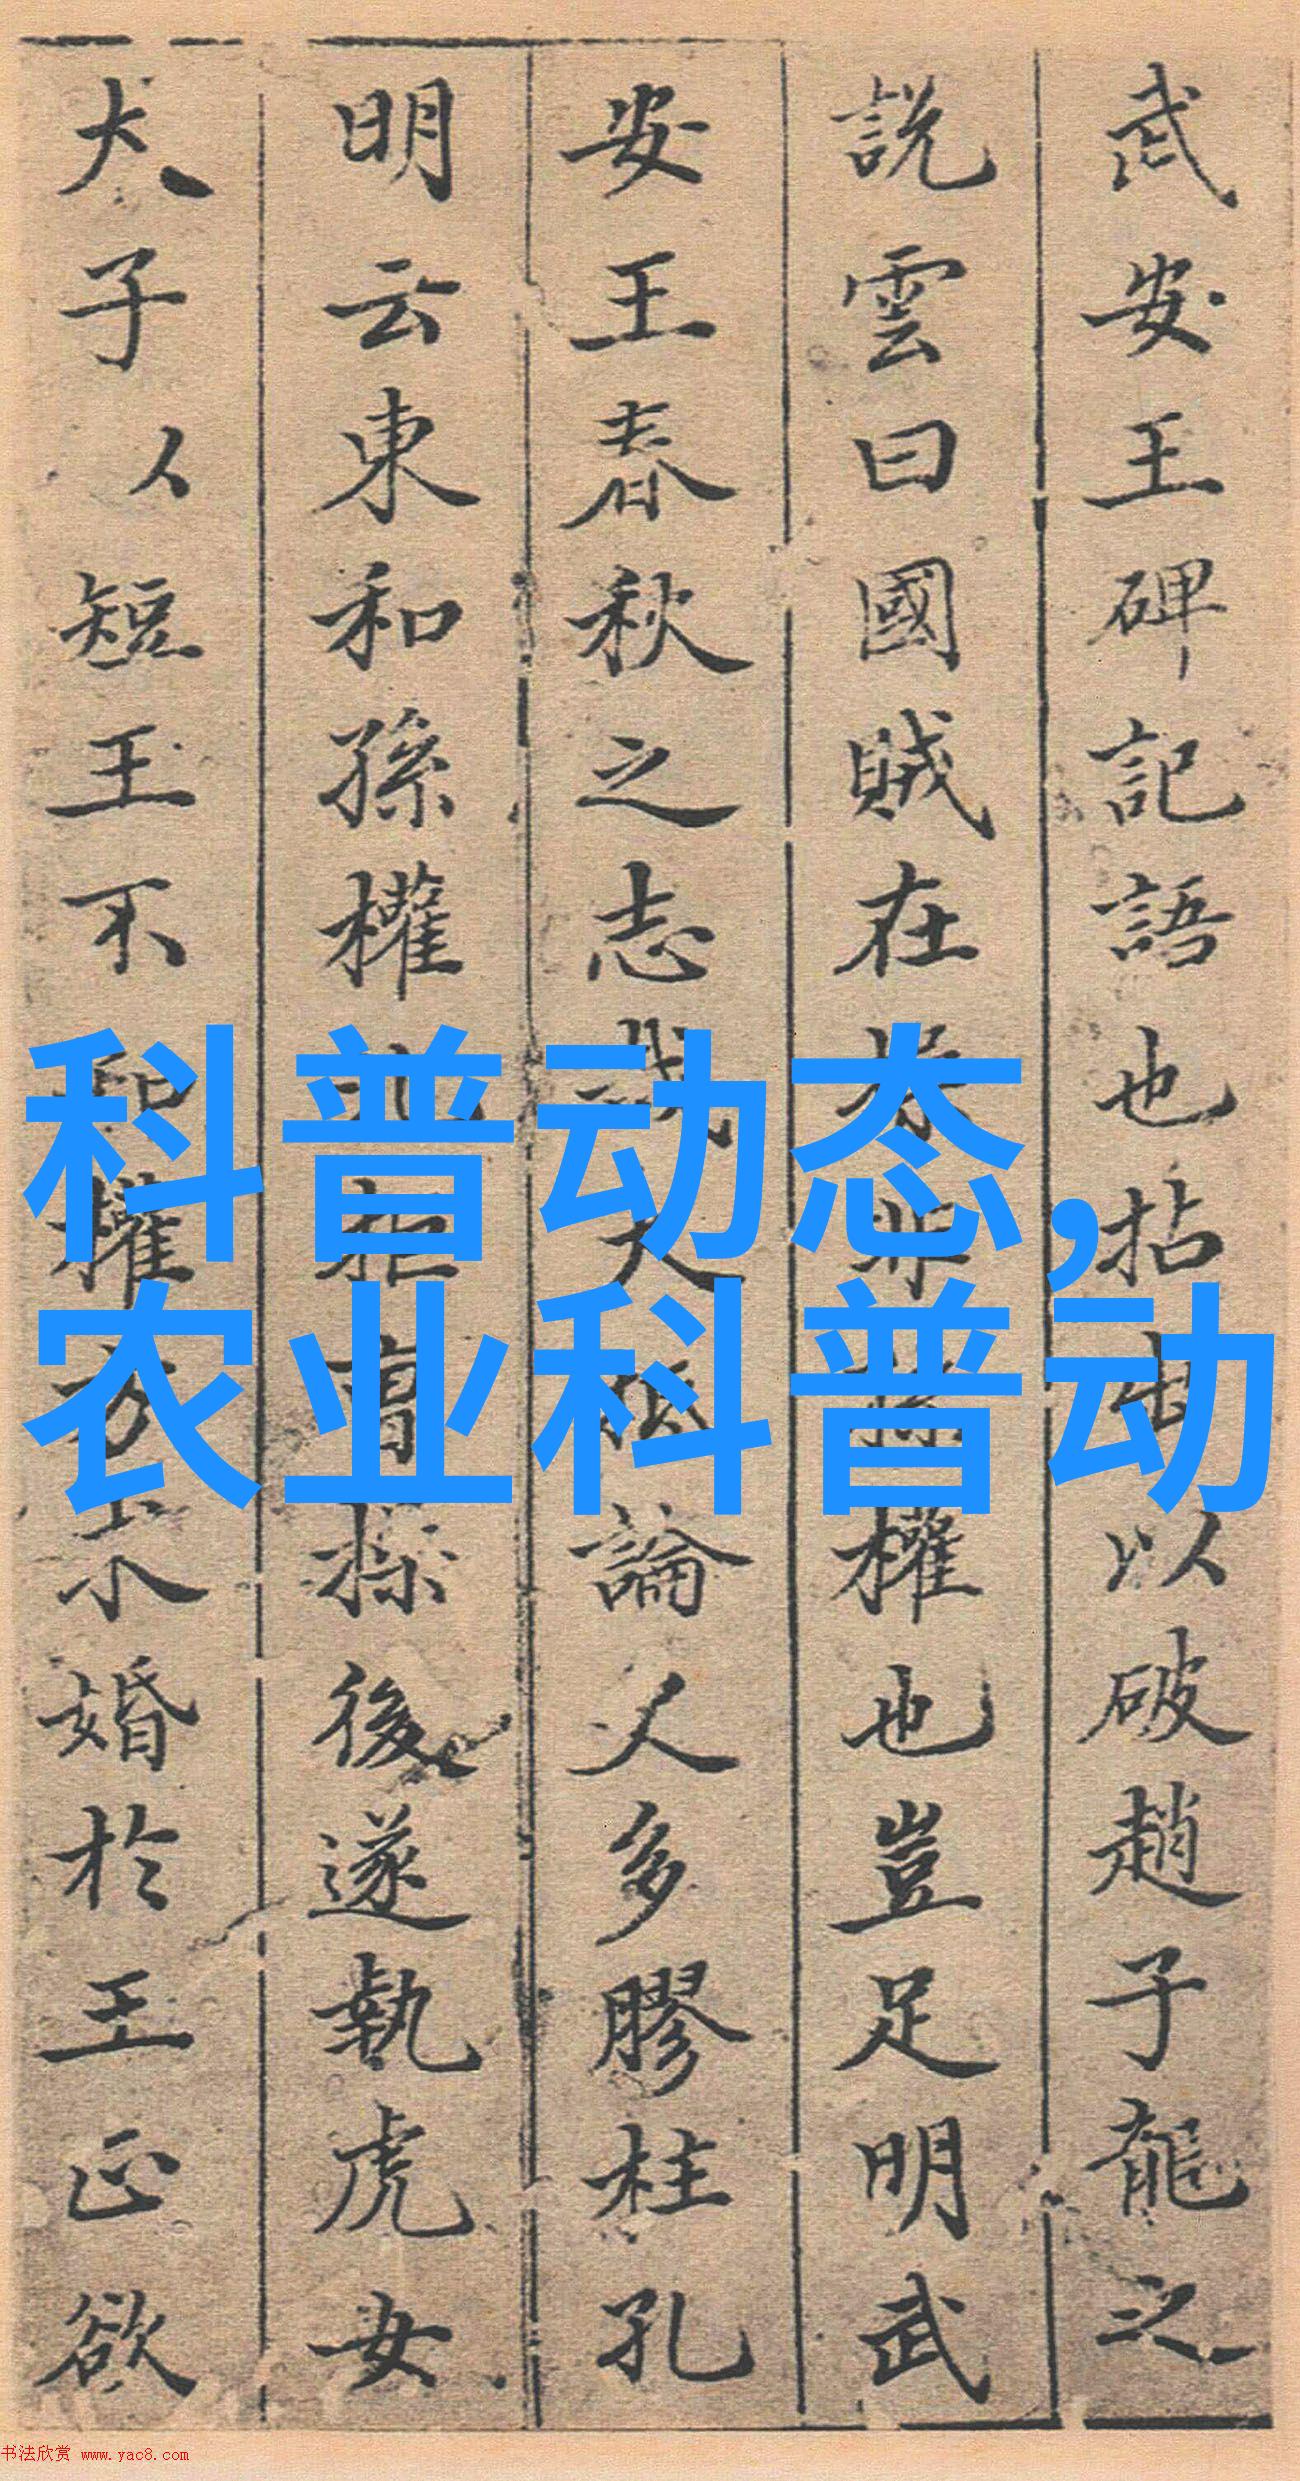 武安王碑記語也拈出以破趙子龍之
說雲曰國賊在操非孫權也豈足明武
安王春秋之志哉大抵論人多膠柱孔
明云東和孫權北拒曹操後遂執虎女
犬子人短王不和權方求婚於王正欲
科普动态,
农业科普动
书法欣赏 www.yac8.com